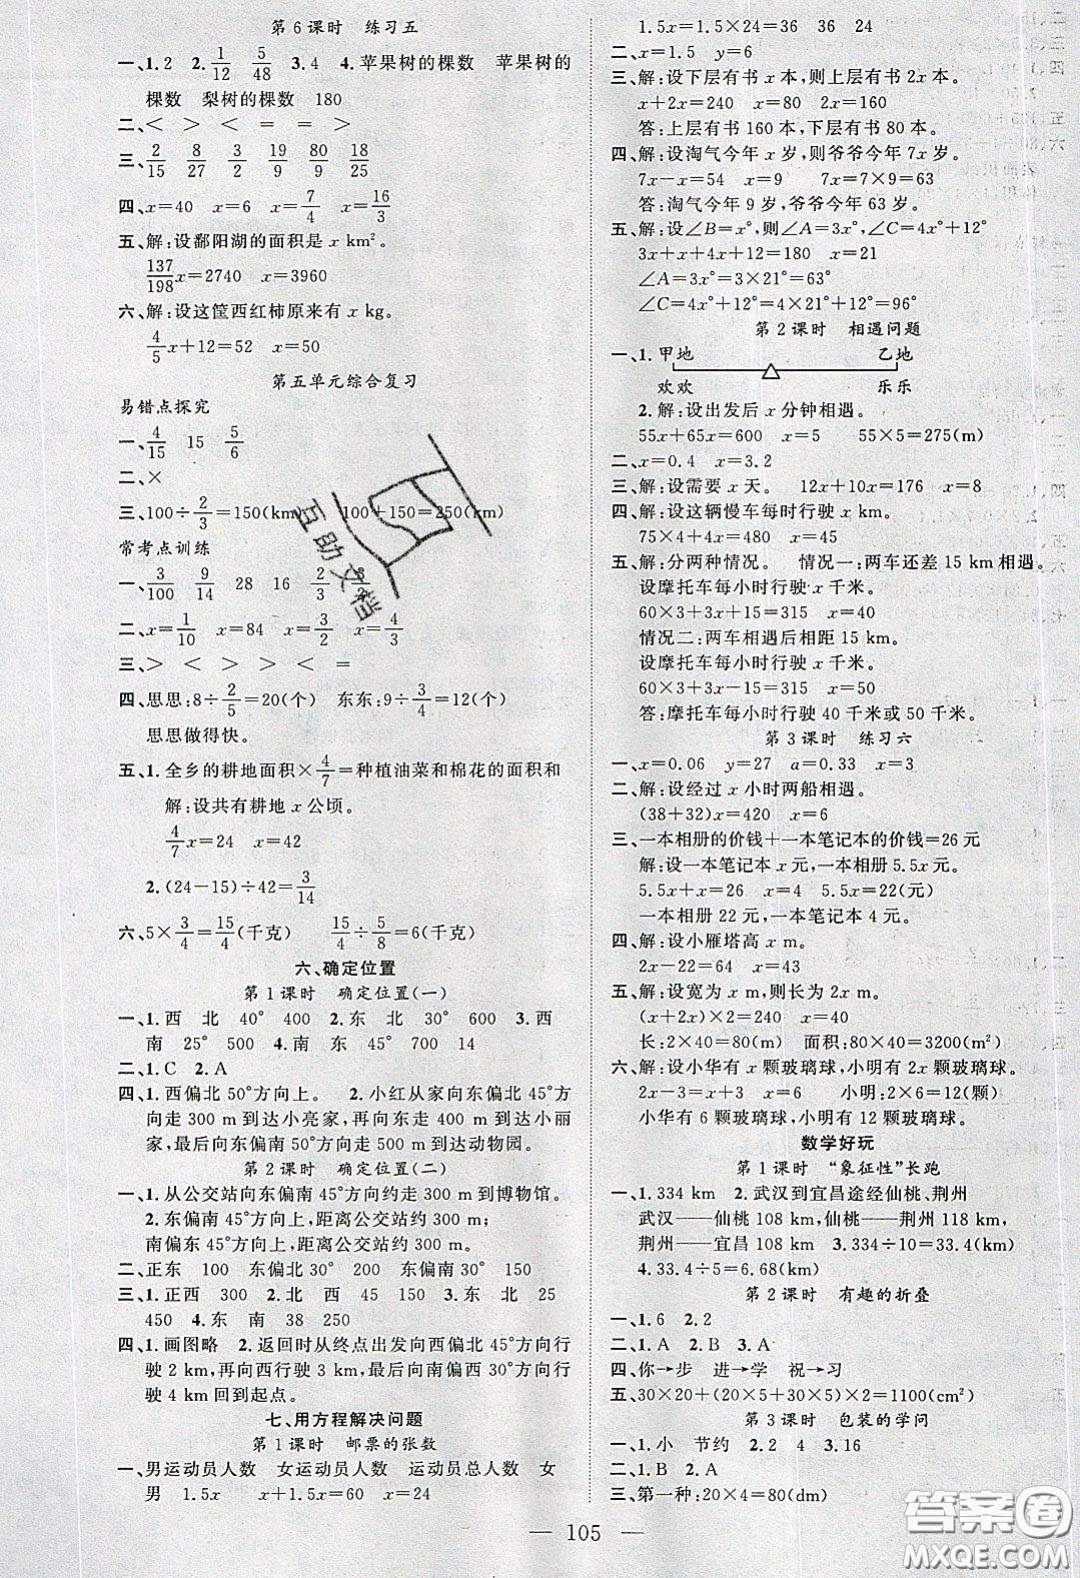 第6课时 练习五
一、1.2 2.1/12 5/48 3.4 4.苹果树的棵数 苹果树的
棵数 梨树的棵数 180
二、< > < = = >
三、2/15 8/27 19/9 80/9 18/25
四、x=40 x=6 x=7/4 x=16/3
五、解:设鄱阳湖的面积是 x km²。
137/198x=2740 x=3960
六、解:设这筐西红柿原来有 x kg。
4/5x+12=52 x=50
第五单元综合复习
易错点探究
一、4/15 15 5/6
二、×
三、100÷2/3=150(km) 100+150=250(km)
常考点训练
一、3/100 9/14 28 16 2/3
二、x=1/10 x=84 x=3/2 x=4/3
三、> < > > < =
四、思思:8÷2/5=20(个) 东东:9÷3/4=12(个)
思思做得快。
五、1.全乡的耕地面积×4/7=种植油菜和棉花的面积和
解:设共有耕地 x 公顷。
4/7x=24 x=42
2.(24-15)÷42=3/14
六、5×3/4=15/4(千克) 15/4÷5/8=6(千克)
六、确定位置
第1课时 确定位置(一)
一、1.西 北 40° 400 2.东 北 30° 600 3.西
南 25° 500 4.南 东 45° 700 14
二、1.C 2.A
四、1.西偏北50°方向上。 2.小红从家向东偏北45°方
向走 300 m 到达小亮家,再向东走 400 m 到达小丽
家,最后向东偏南50°方向走 500 m 到达动物园。
第2课时 确定位置(二)
一、1.从公交站向东偏南45°方向约走 300 m 到博物馆。
2.东偏南45°方向上,距离公交站约 300 m;
南偏东45°方向上,距离公交站约 300 m。
二、正东 100 东偏北30° 200 东偏南30° 150
三、1.正西 300 2.北 西 45 150 3.东 北 25
450 4.东 南 38 250
四、1.画图略 2.返回时从终点出发向西偏北45°方向行
驶 2 km,再向西行驶 3 km,最后向南偏西50°方向
行驶 4 km 回到起点。
七、用方程解决问题
第1课时 邮票的张数
一、男运动员人数 女运动员人数 运动员总人数 女
男 1.5x x+1.5x=60 x=24
1.5x=1.5×24=36 36 24
二、x=1.5 y=6
三、解:设下层有书 x 本,则上层有书 2x 本。
x+2x=240 x=80 2x=160
答:上层有书 160 本,下层有书 80 本。
四、解:设淘气今年 x 岁,则爷爷今年 7x 岁。
7x-x=54 x=9 7x=7×9=63
答:淘气今年 9 岁,爷爷今年 63 岁。
五、解:设∠B=x°,则∠A=3x°,∠C=4x°+12°
3x+x+4x+12=180 x=21
∠A=3x°=3×21°=63°
∠C=4x°+12°=4×21°+12°=96°
第2课时 相遇问题
一、1.甲地 乙地
欢欢 乐乐
2.解:设出发后 x 分钟相遇。
55x+65x=600 x=5 55×5=275(m)
二、x=0.4 x=3.2
三、解:设需要 x 天。 12x+10x=176 x=8
四、解:设这辆慢车每时行驶 x km。
75×4+4x=480 x=45
五、解:分两种情况。 情况一:两车还差 15 km相遇。
设摩托车每小时行驶 x 千米。
60×3+3x+15=315 x=40
情况二:两车相遇后相距 15 km。
设摩托车每小时行驶 x 千米。
60×3+3x-15=315 x=50
答:摩托车每小时行驶 40 千米或 50 千米。
第3课时 练习六
一、x=0.06 y=27 a=0.33 x=3
二、解:设经过 x 小时两船相遇。
(38+32)x=420 x=6
三、一本相册的价钱+一本笔记本的价钱=26 元
解:设一本笔记本 x 元,一本相册 5.5x元。
5.5x+x=26 x=4 5.5x=22(元)
一本相册 22 元,一本笔记本 4 元。
四、解:设小雁塔高 x m。
2x-22=64 x=43
五、解:设宽为 x m,则长为 2x m。
(x+2x)×2=240 x=40
长:2×40=80(m) 面积:80×40=3200(m²)
六、解:设小华有 x 颗玻璃球,小明有 2x 颗玻璃球。
2x-3=x+3 x=6 小明:2×6=12(颗)
小华有 6 颗玻璃球,小明有 12 颗玻璃球。
数学好玩
第1课时 “象征性”长跑
一、1.334 km 2.武汉到宜昌途经仙桃、荆州
武汉——仙桃 108 km,仙桃——荆州 118 km,
荆州——宜昌 108 km 3.334÷10=33.4(km)
4.33.4÷5=6.68(km)
第2课时 有趣的折叠
一、1.6 2.2
二、1.A 2.B 3.A
四、你→步 进→学 祝→习
五、30×20+(20×5+30×5)×2=1100(cm²)
第3课时 包装的学问
一、1.小 节约 2.2 4 3.16
二、1.B 2.A
三、第一种:20×4=80(dm)
105
互助文档
答案圈
MXQE.COM